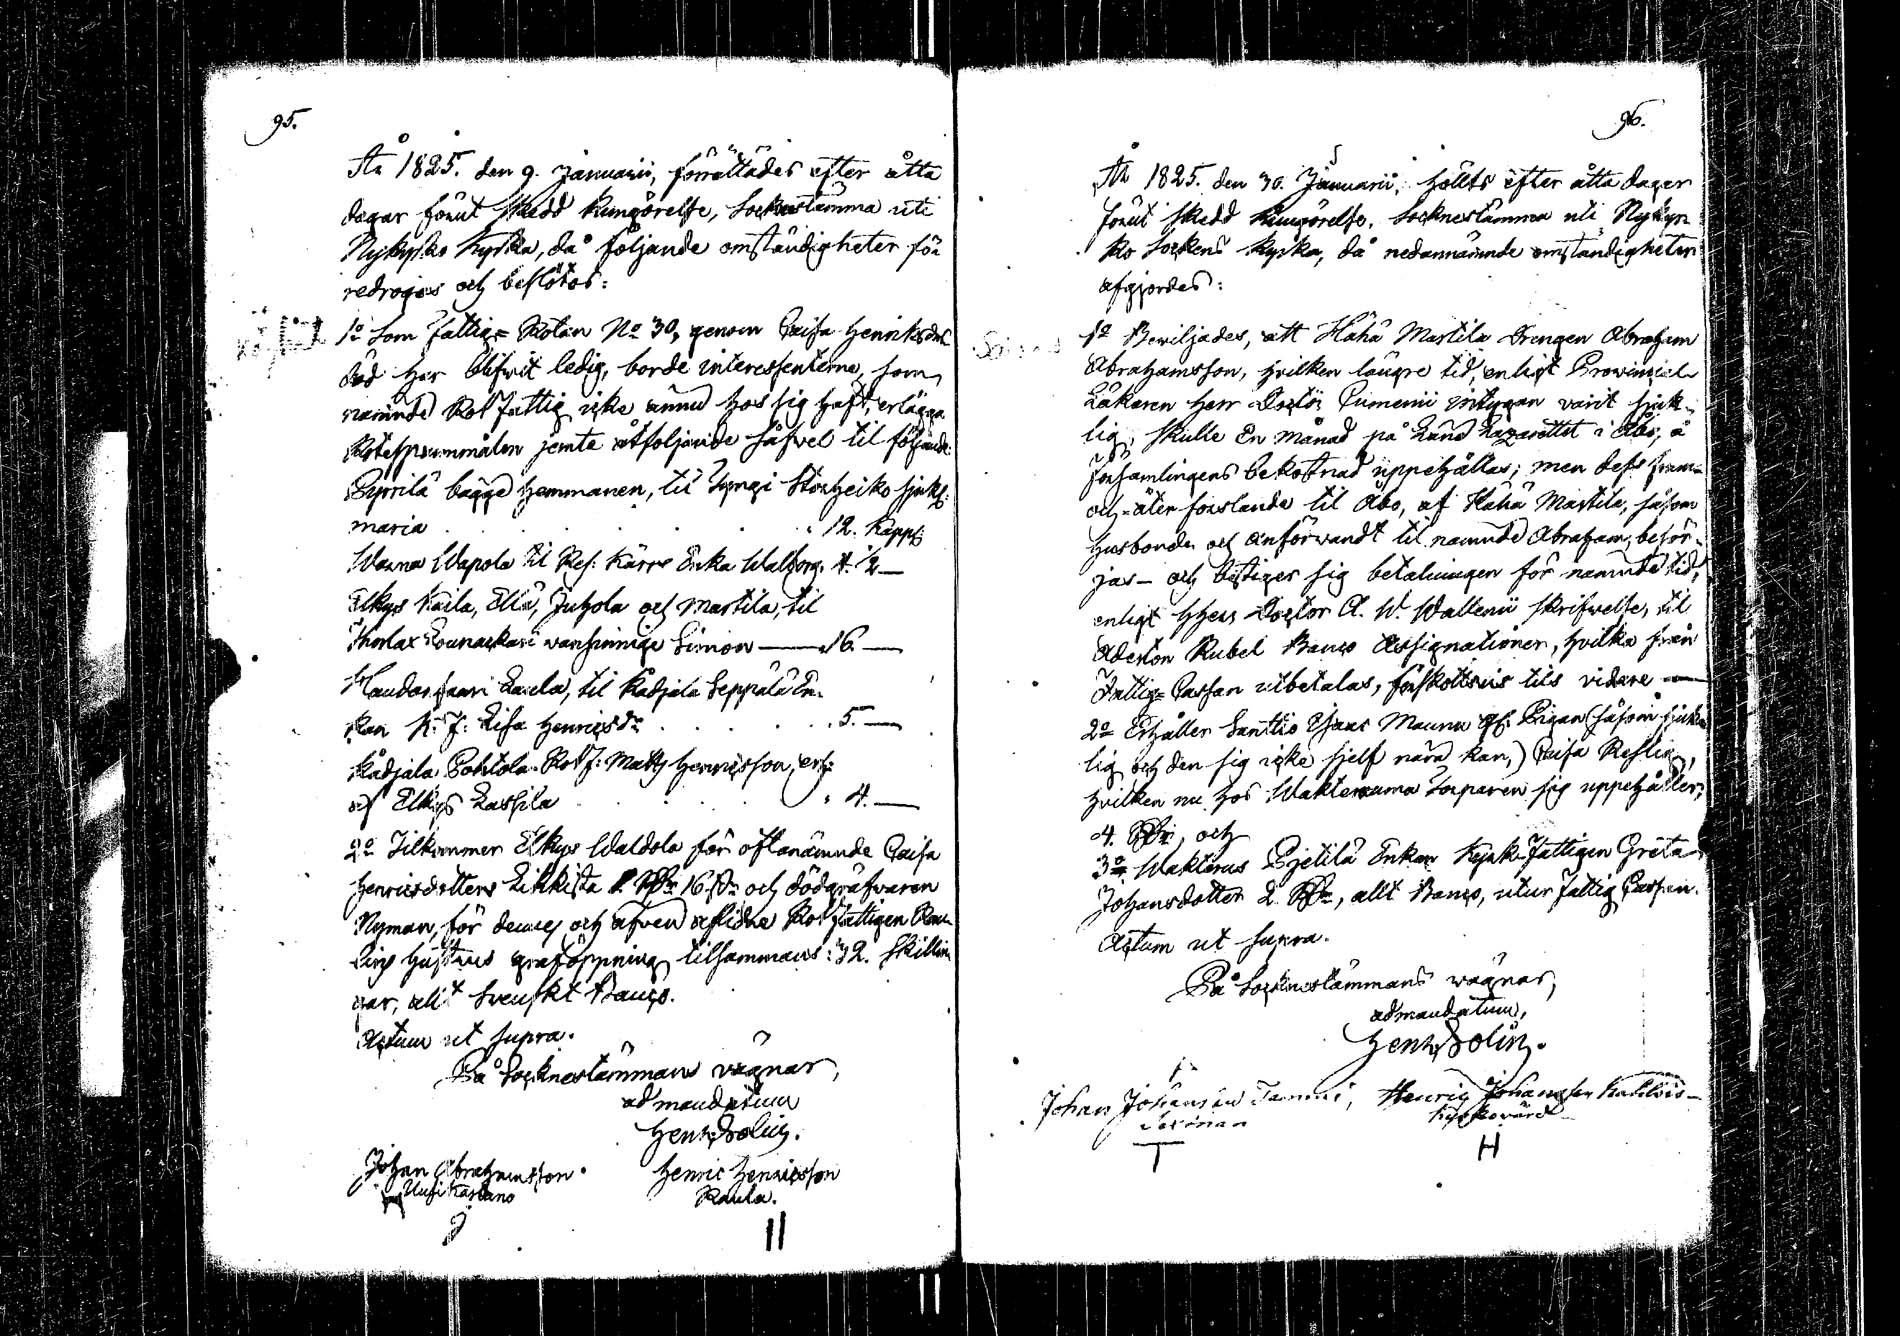 95.
År 1825. den 9. Januarii, förrättades efter åtta
dagar förut skedd kungörelse, Socknestämma uti
Nykyrko Kyrka, då följande omständigheter fö-
redrogos och beslötos:
1o Som Fattig= Rotan No 30, genom Caisa Henriksdrs
död har blifwit ledig, borde interessenterne, som
nämnde Rotfattig icke ännu hos sig haft, erlägga
Rotespannmålen jemte åtföljande såfvel til följande:
Pyrrilä bägge Hemmanen, til
maria . . . . 12. Kappr
Warna Wapola til Kärre Enka Walborg. 4. 1/2 —
Elkys Kaila, Ella, Juhola och Martila, til
wansinnige Simon — 16 —
Laula, til Kadjala Seppälä En-
kan R. F: Lisa Henricsdr . . . 5. —
Kadjala Pohtola Rot f: Matts Henricsson, erh:
af Elkys Lassila . . . . 4. —
2o Tilkommer Elkys Waldola för oftanämnde Caisa
Henricsdotters Likkista 16 och dödgräfwaren
Nyman, för dennes och äfven aflidne Rotfattigen
Gustavs graföppning tilsammans: 32. Skillin-
gar, allt Svenskt Banco.
Actum ut supra.
På Socknestämmans vägnar,
ad mandatum
Henr. Bolin.
Johan Abrahamsson
Uusi
Henric Henricsson
Raula.
96.
År 1825. den 30. Januarii, hölts efter åtta dagar
förut skedd kungörelse, Socknestämma uti Nykyr-
ko Sockens kyrka, då nedannämnde omständigheter
afgjordes:
1o Bewiljades, att Hähä Martila Drengen Abraham
Abrahamsson, hvilken längre tid, enligt Provincial
Läkaren Herr Doctor intygan varit sjuk-
lig, skulle En månad på Länd Lazarettet i Åbo, å
Församlingens bekostnad uppehållas; men dess fram=
och åter forslande til Åbo, af Hähä Martila, såsom
husbonde och anförwandt til nämnde Abraham, besör-
jas — och bestiger sig betalningen för nämnde tid,
enligt Herr Doctor A. W. Wallenii skrifwelse, til
Aderton Rubel Banco Assignationer, hvilka från
Fattig= Cassan utbetalas, förskottsvis tils vidare —
2o Erhåller Santtio Isaac Maunu Pigan (såsom sjuk-
lig och den sig icke sjelf nära kan,) Caisa
hvilken nu hos Torparen sig uppehåller,
4. och
3o Wakterus Pjetilä Enkan Kyrk-Fattigen Greta
Johansdotter 2 , allt Banco, utur Fattig Cassan.
Actum ut supra.
På Socknestämmans wägnar,
ad mandatum,
Henr. Bolin.
Johan Johansson Tammi, Henric Johansson
Kyrkovärd
T H